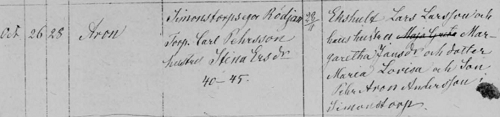 Oct. 26 28 Aron
Simonstorps egor Rödjan
Torp. Carl Pehrsson
hustru Stina Ersdr
40-45.
29/11
Ekshult Lars Larsson och
hans hustru Maja Greta Mar-
garetha Jansdr och dotter
Maria Lovisa och Son
Pehr Aron Andersson i
Simonstorp.